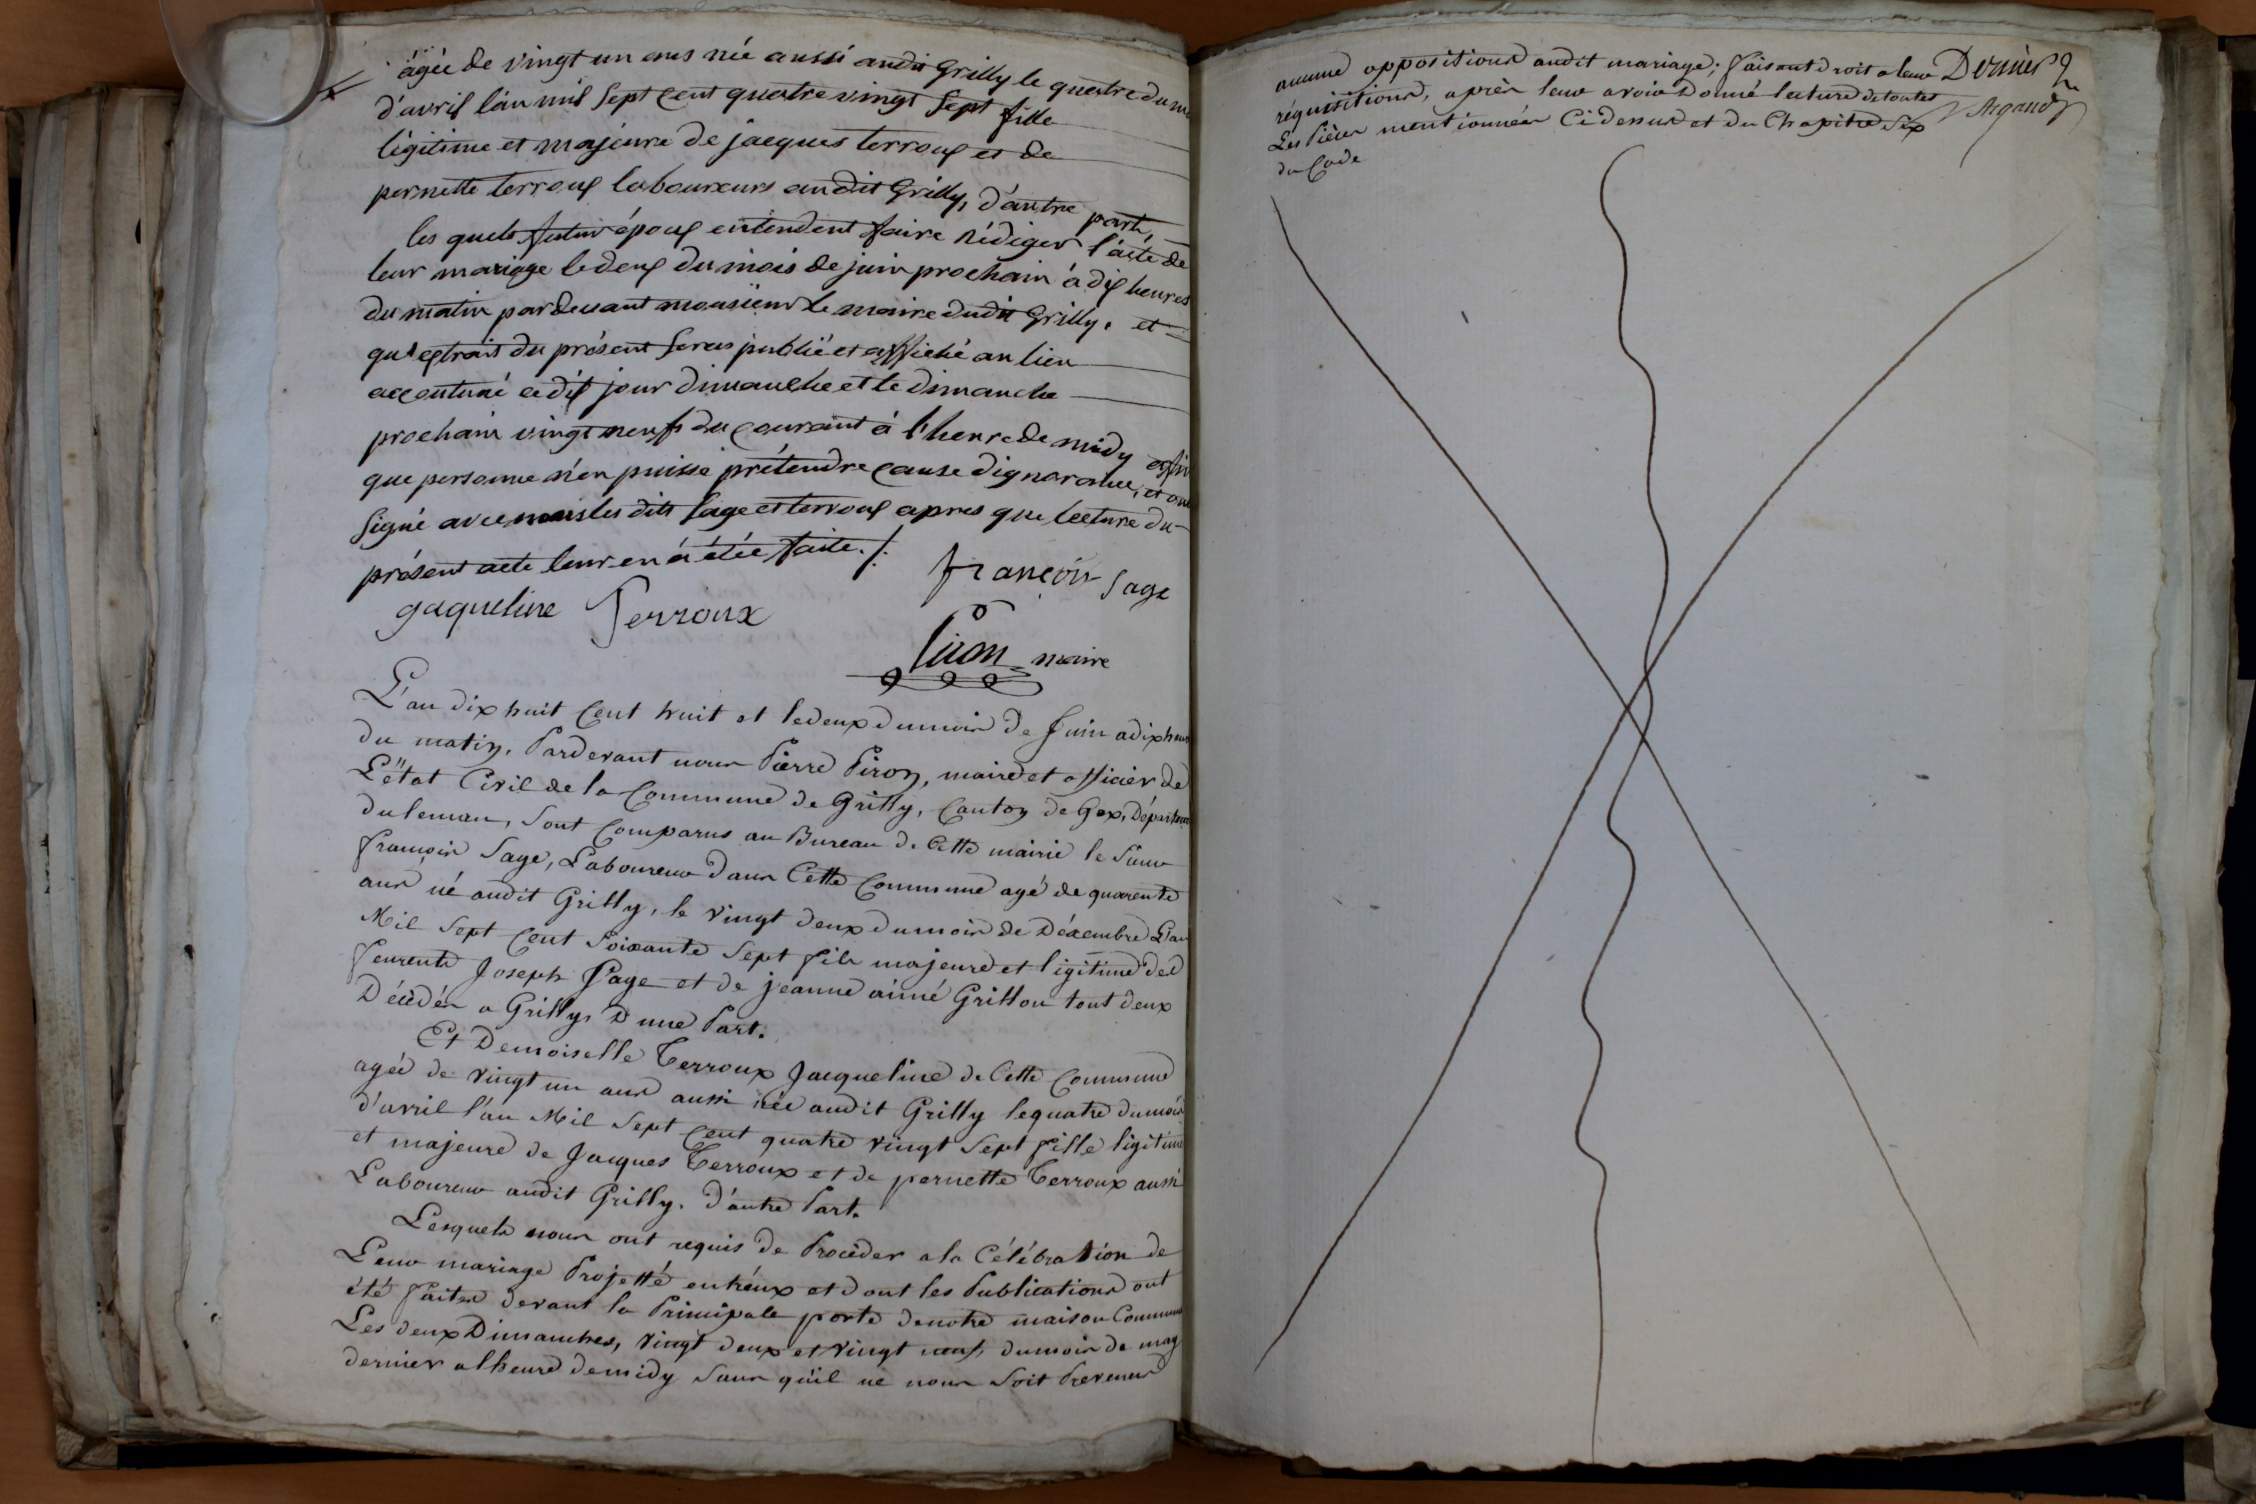 âgée de vingt un ans née aussi audit Grilly le quatre du mo
d'avril l'an mil sept cent quatre vingt sept fille
légitime et majeure de jacques terroux et de
pernette terroux laboureurs audit Grilly, d'autre part,
les quels futur époux entendent faire rédiger l'acte de
leur mariage le deux du mois de juin prochain à dix heures
du matin pardevant monsieur le maire dudit Grilly. et
qu'extrait du présent seras publié et affiché au lieu
accoutumé cedit jour dimanche et le dimanche
prochain vingt neuf du courant à l'heure de midy affin
que personne n'en puisse prétendre cause d'ignorance, et ont
signé avec nous les dits sage et terroux apres que lecture du
présent acte leur en à étée faite ./.
françois sage
jaqueline Terroux
Piron maire
L'an dix huit Cent huit et le deux du mois de Juin a dix heures
du matin, Pardevant nous Pierre Piron, maire et officier de
L'état Civil de la Commune de Grilly, Canton de Gex, Départem
du leman, sont Comparus au Bureau de Cette mairie le Sieur
François Sage, Laboureur dans Cette Commune agé de quarente
ans né audit Grilly, le vingt deux du mois de Décembre L'an
Mil Sept Cent Soixante Sept fils majeure et ligitime des
feurente Joseph Sage et de jeanne aimé Grillon tout deux
Décédés a Grilly, D'une Part.
Et Demoiselle Terroux Jacqueline de Cette Commune
agée de vingt un ans aussi née audit Grilly le quatre du mois
d'avril l'an Mil Sept Cent quatre vingt Sept fille ligitime
et majeure de Jacques Terroux et de pernette Terroux aussi
Laboureur audit Grilly. D'autre Part.
Lesquels nous ont requis de Procéder a la Célébration de
Leur mariage Projetté entréux et dont les Publications ont
été faites devant la Principale porte de notre maison Commune
Les deux Dimanches, vingt deux et vingt neuf, du mois de may
dernier a lheure de midy sans qu'il ne nous soit Parvenus
aucune oppositions audit mariage; faisant droit a leur
réquisitions, après leur avoir Donné lecture de toutes
Les Pièces mentionnées Ci dessus et du Chapitre Six
du Code
Dernier
Argand